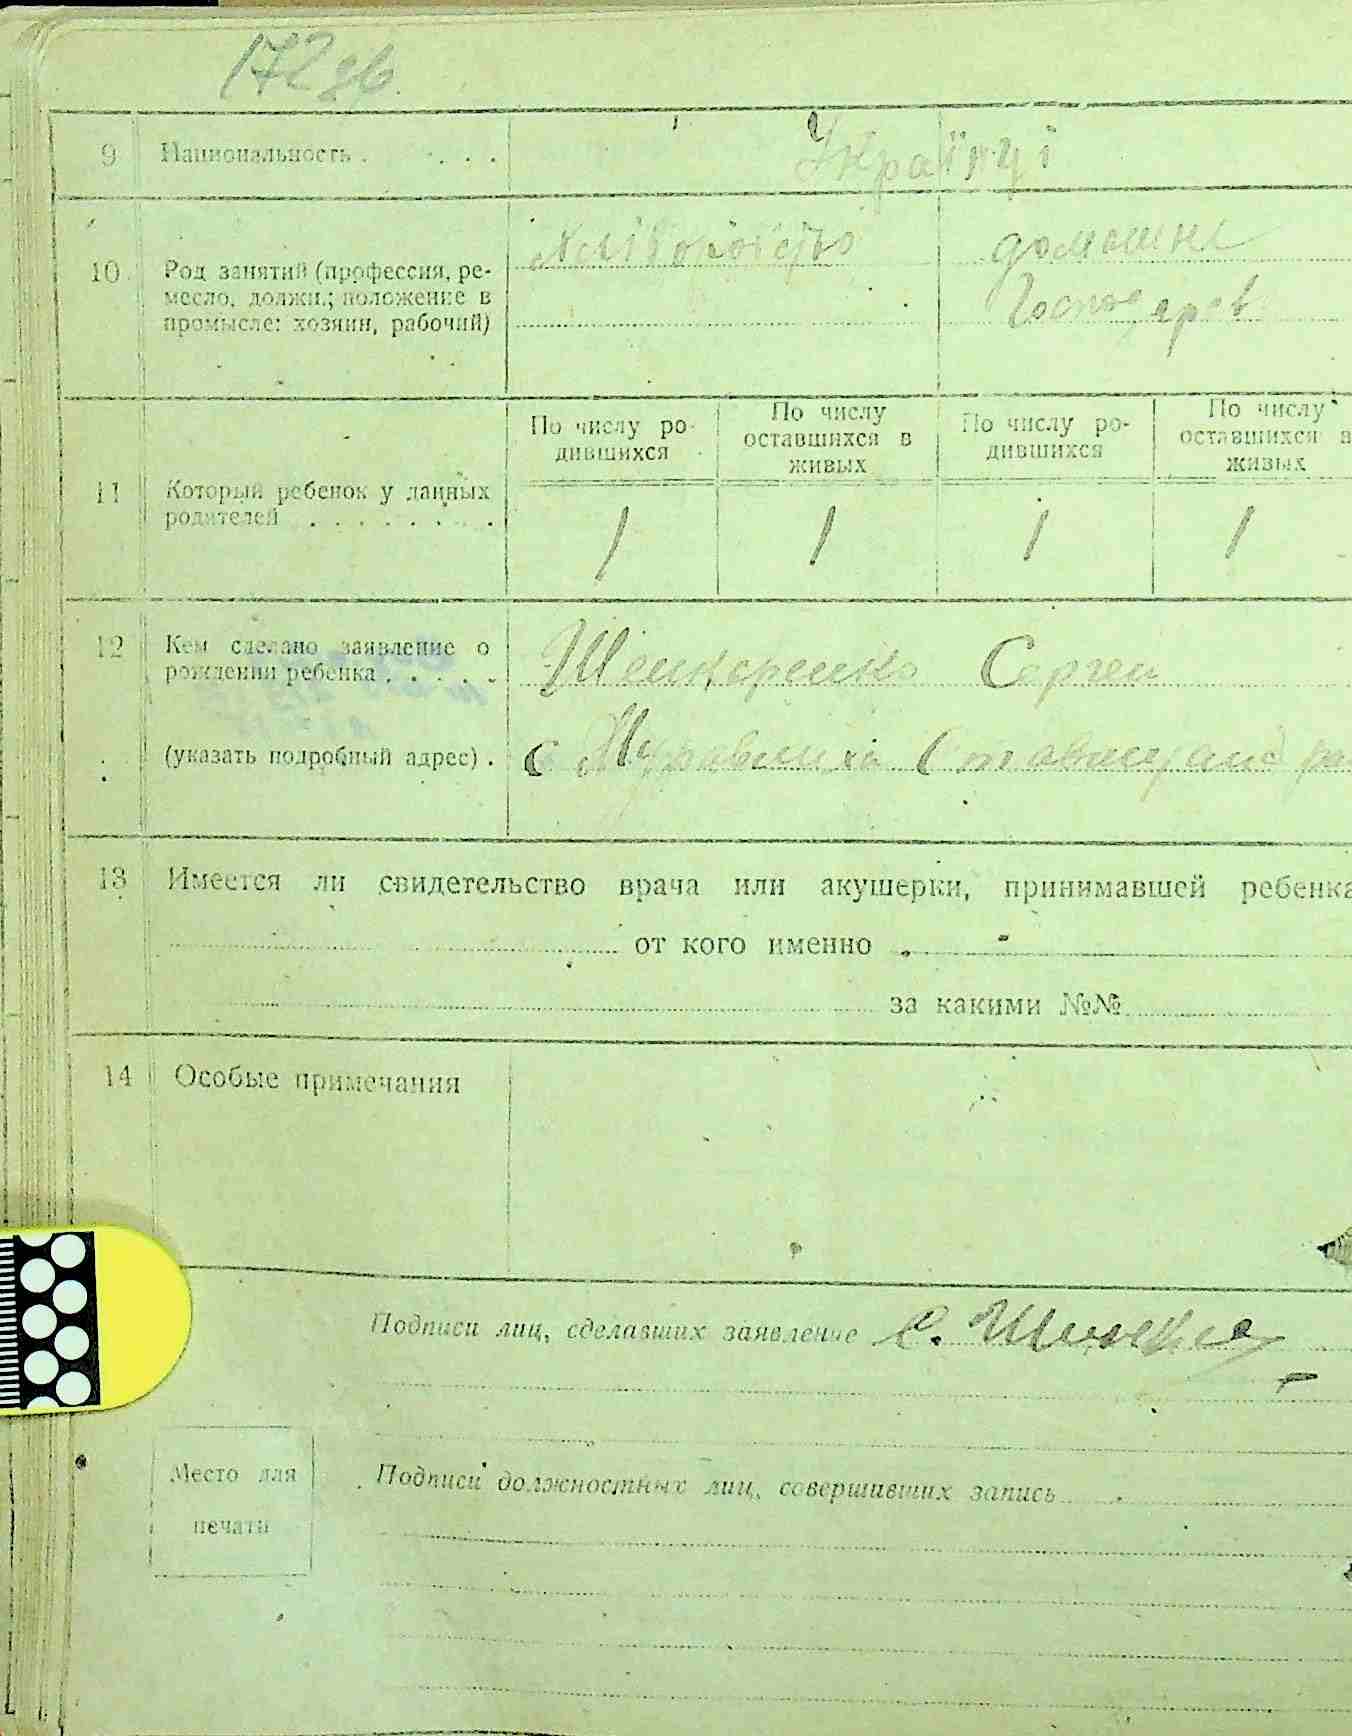 172 зв.
9 Национальность . . . . Українці
10 Род занятий (профессия, ре-
месло, должн.; положение в
промысле: хозяин, рабочий)
хліборобство
домашнє
Господарств
По числу ро-
дившихся
По числу
оставшихся в
живых
По числу ро-
дившихся
По числу
оставшихся в
живых
11 Который ребенок у данных
родителей . . . . . . . .
1 1 1 1
12 Кем сделано заявление о
рождении ребенка . . . . .
Сергей
(указать подробный адрес) .
с Журавлиха
13 Имеется ли свидетельство врача или акушерки, принимавшей ребенка
от кого именно
за какими №№
14 Особые примечания
Подписи лиц, сделавших заявление С.
Место для
печати
Подписи должностных лиц, совершивших запись